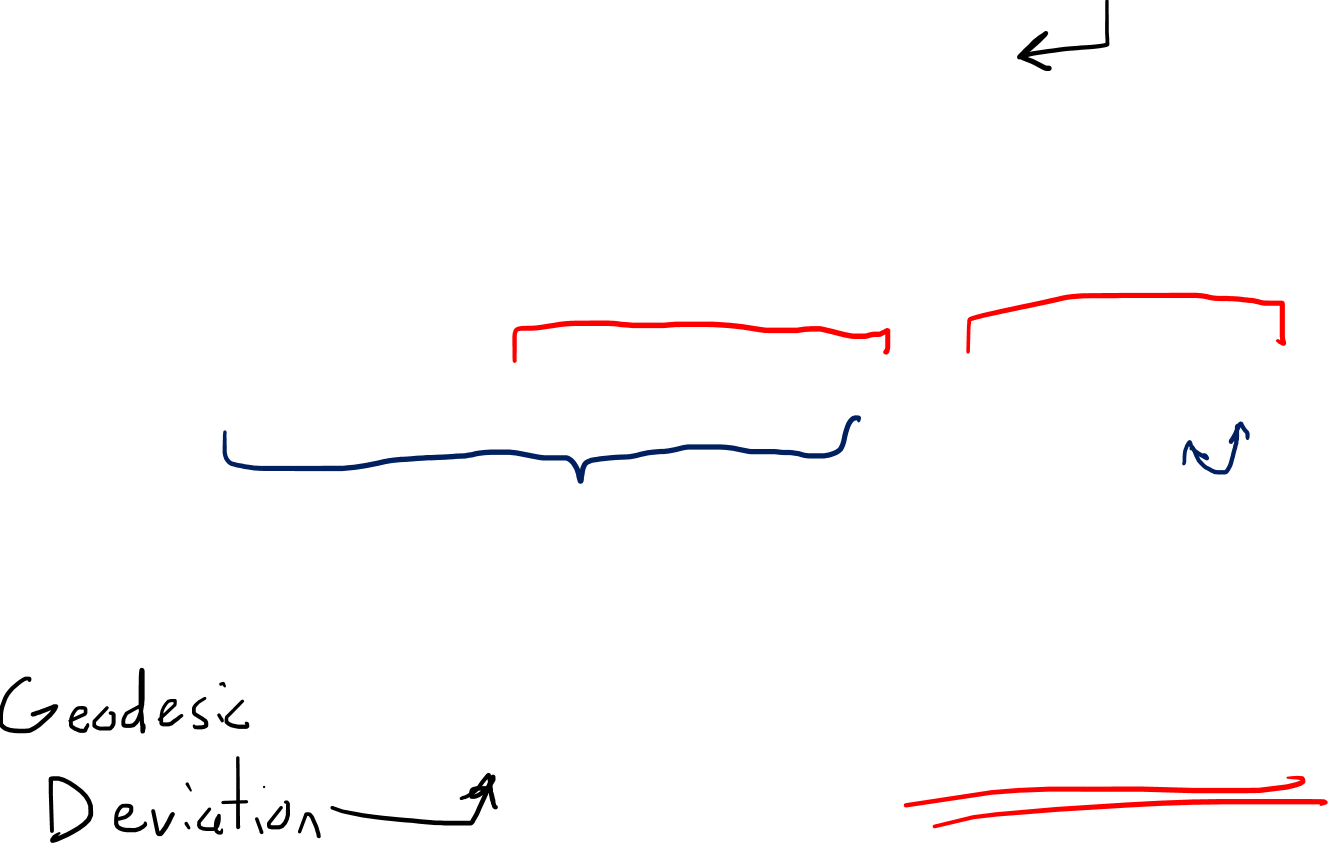 Geodesic
Deviation